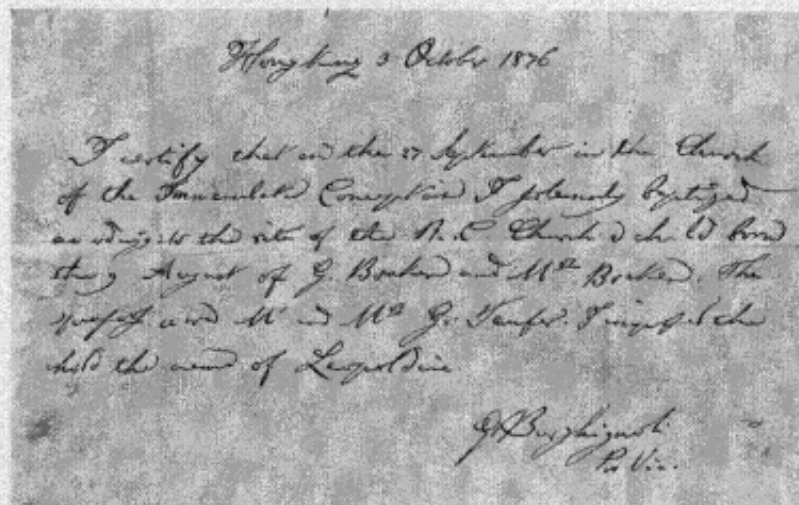 Hongkong 3 October 1876
I certify that on the 27 September in the Church
of the Immaculate Conception I solemnly baptized
according to the rite of the R. C. Church a child born
the 9 August of G. and Mrs. The
Mr and Mrs G. I the
child the name of Leopoldine
Pro Vic.